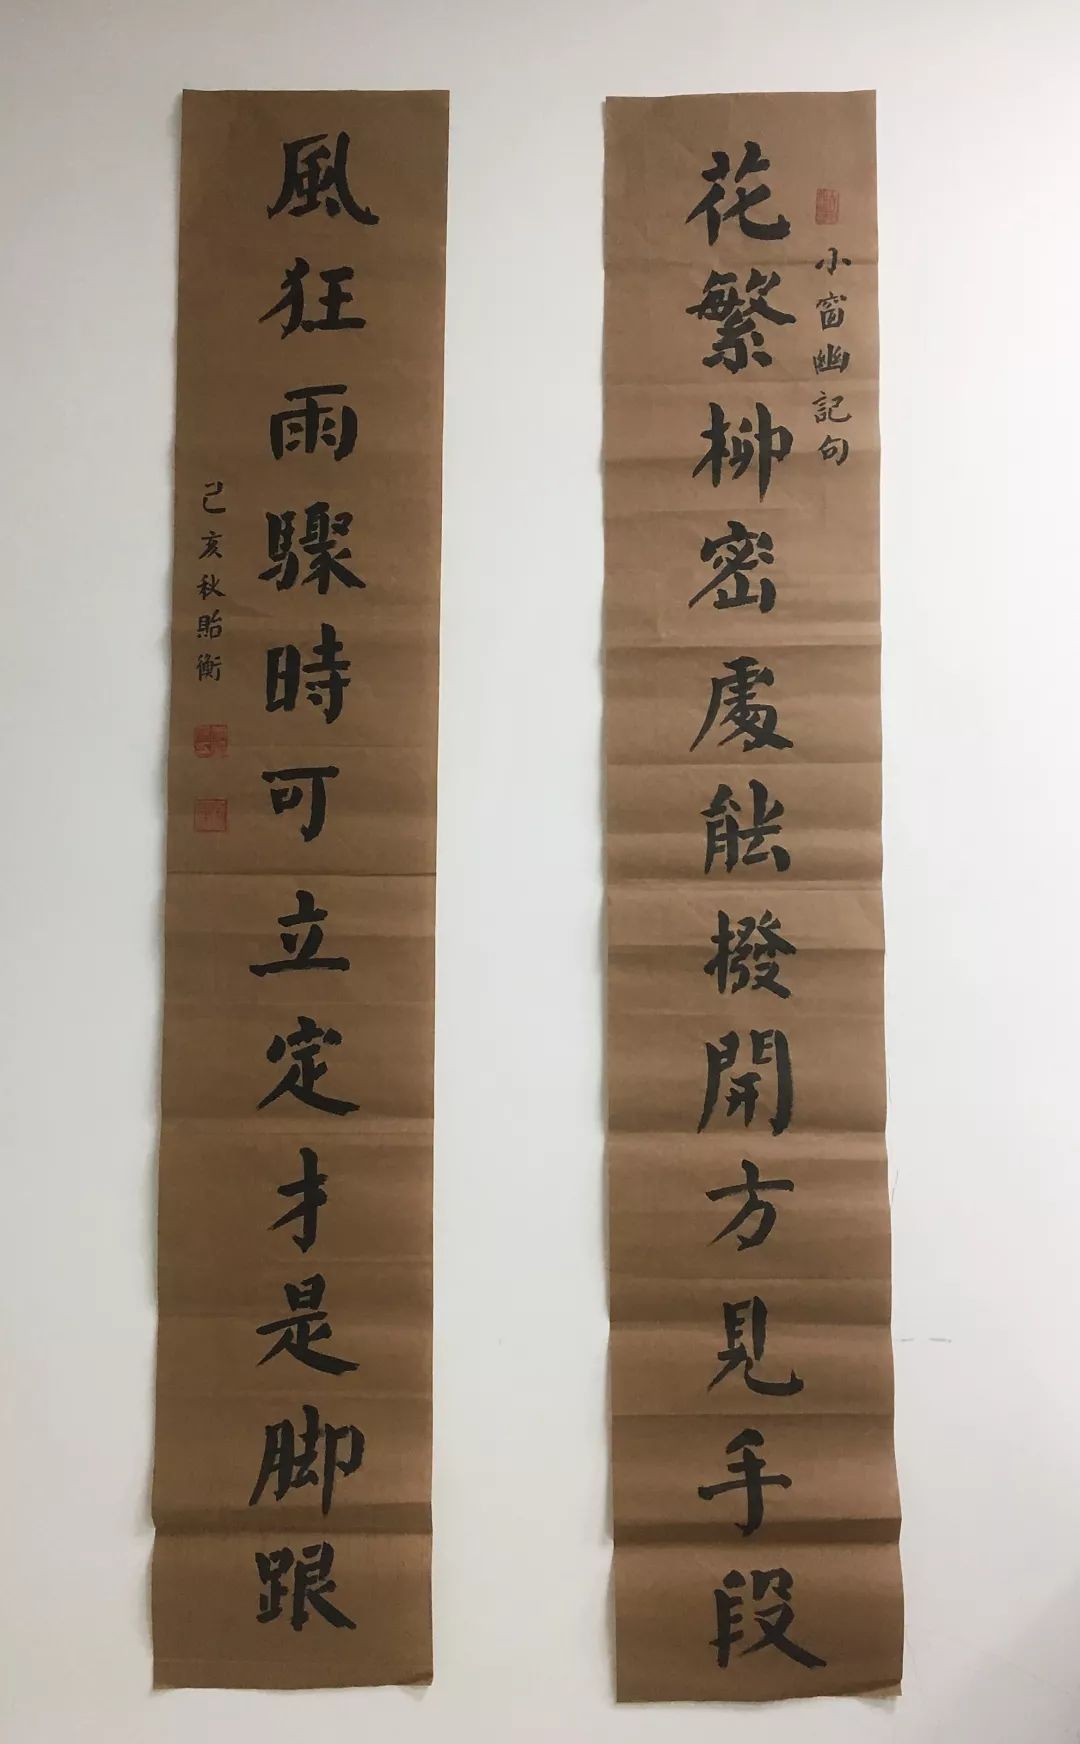 小窗幽記句
花繁柳密處能撥開方見手段
風狂雨驟時可立定才是脚跟
己亥秋貽衡